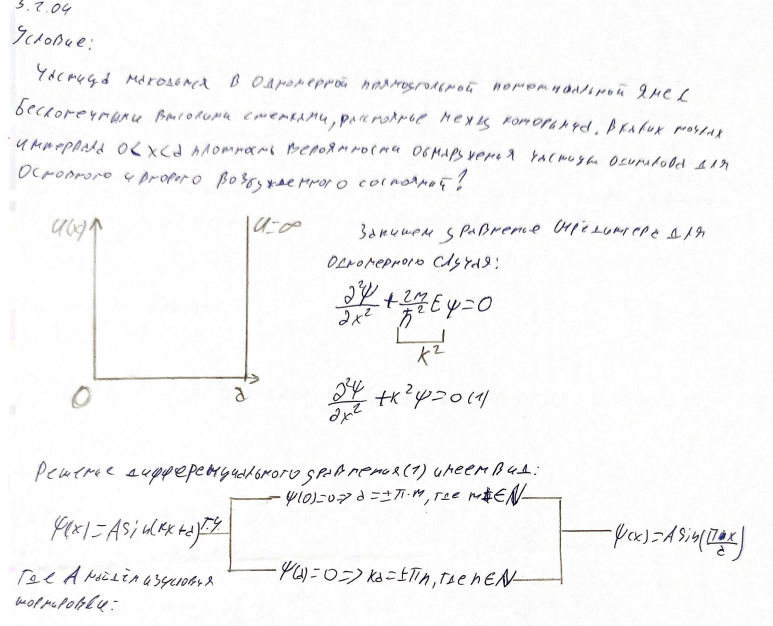 3.2.04
Условие:
Частица находится в одномерной прямоугольной потенциальной яме с
бесконечными высокими стенками, расстояние между которыми a. В каких точках
интервала 0<x<a плотность вероятности обнаружения частицы одинакова для
основного и второго возбужденного состояний?
U(x)
U=∞
0
a
Запишем уравнение Шредингера для
одномерного случая:
∂²Ψ/∂x² + 2m/ħ² EΨ=0
k²
∂²Ψ/∂x² + k²Ψ=0 (1)
Решение дифференциального уравнения (1) имеет вид:
Ψ(0)=0 => α=±π·m, где m∈N
Ψ(x)=A sin(kx+α) т.ч.
Ψ(x)=A sin(πnx/a)
Ψ(a)=0 => ka=±πn, где n∈N
где A найдём из условия
нормировки: